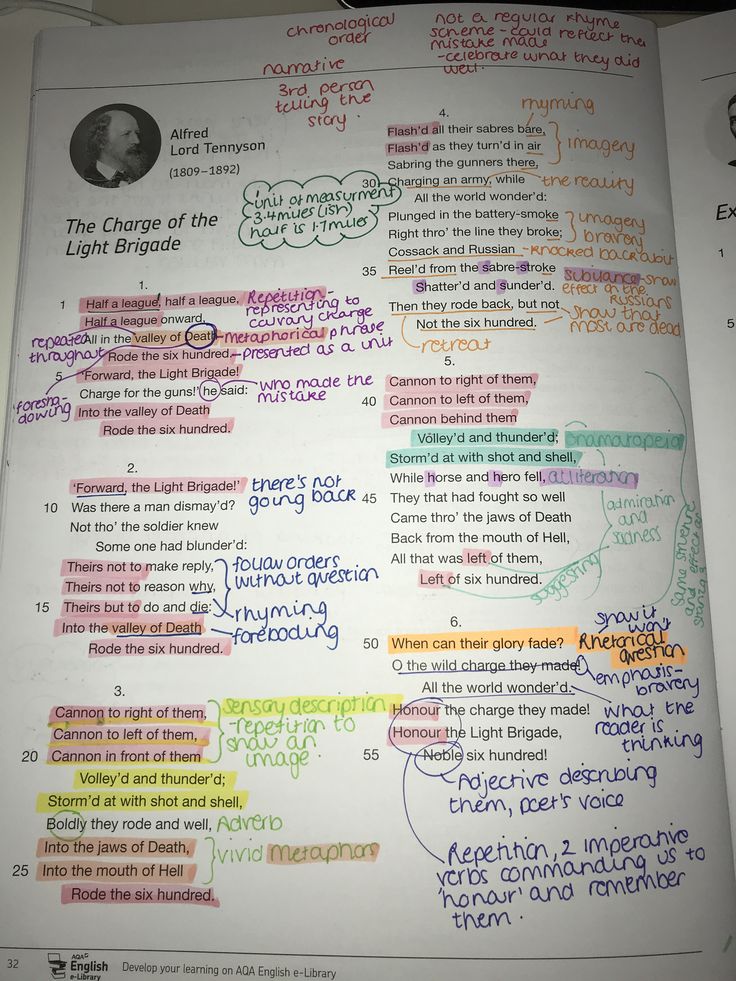 chronological order
narrative
3rd person telling the story.
not a regular rhyme
scheme - could reflect the
mistake made
- celebrate what they did
well.
Alfred
Lord Tennyson
(1809–1892)
The Charge of the
Light Brigade
unit of measurment
3.4miles (ish)
half is 1.7miles
1.
1 Half a league, half a league, Repetition -
representing to
calvary charge
Half a league onward,
repeated throughout
All in the valley of Death - Metaphorical phrase
Rode the six hundred. - presented as a unit
5 'Forward, the Light Brigade!
Charge for the guns!' he said: who made the mistake
'foreshadowing
Into the valley of Death
Rode the six hundred.
2.
'Forward, the Light Brigade!' there's not going back
10 Was there a man dismay'd?
Not tho' the soldier knew
Some one had blunder'd:
Theirs not to make reply,
Theirs not to reason why,
follow orders without question
15 Theirs but to do and die: rhyming
Into the valley of Death foreboding
Rode the six hundred.
3.
Cannon to right of them,
Cannon to left of them,
20 Cannon in front of them
Sensory description
- repetition to
show an
image.
Volley'd and thunder'd;
Storm'd at with shot and shell,
Boldly they rode and well, Adverb
Into the jaws of Death,
25 Into the mouth of Hell
vivid Metaphors
Rode the six hundred.
4.
rhyming
Flash'd all their sabres bare,
Flash'd as they turn'd in air
imagery
Sabring the gunners there,
30 Charging an army, while the reality
All the world wonder'd:
Plunged in the battery-smoke
Right thro' the line they broke;
imagery
bravery
Cossack and Russian - knocked back about
35 Reel'd from the sabre-stroke
Shatter'd and sunder'd.
sibilance - show
effect on the
Russians
Then they rode back, but not
Not the six hundred.
show that
most are dead
retreat
5.
Cannon to right of them,
40 Cannon to left of them,
Cannon behind them
Volley'd and thunder'd; onamatopeia
Storm'd at with shot and shell,
While horse and hero fell, alliteration
45 They that had fought so well
Came thro' the jaws of Death
Back from the mouth of Hell,
All that was left of them,
Left of six hundred.
admiration
and
sadness
suggesting
same
and effect as
stanza 3
6.
50 When can their glory fade? Rhetorical question
show it
won't
O the wild charge they made! emphasis - bravery
All the world wonder'd. what the
reader is
thinking
Honour the charge they made!
Honour the Light Brigade,
55 Noble six hundred!
Adjective describing
them, poet's voice
Repetition, 2 imperative
verbs commanding us to
'honour' and remember
them.
Ex
1
5
32
AQA
English
e-Library
Develop your learning on AQA English e-Library